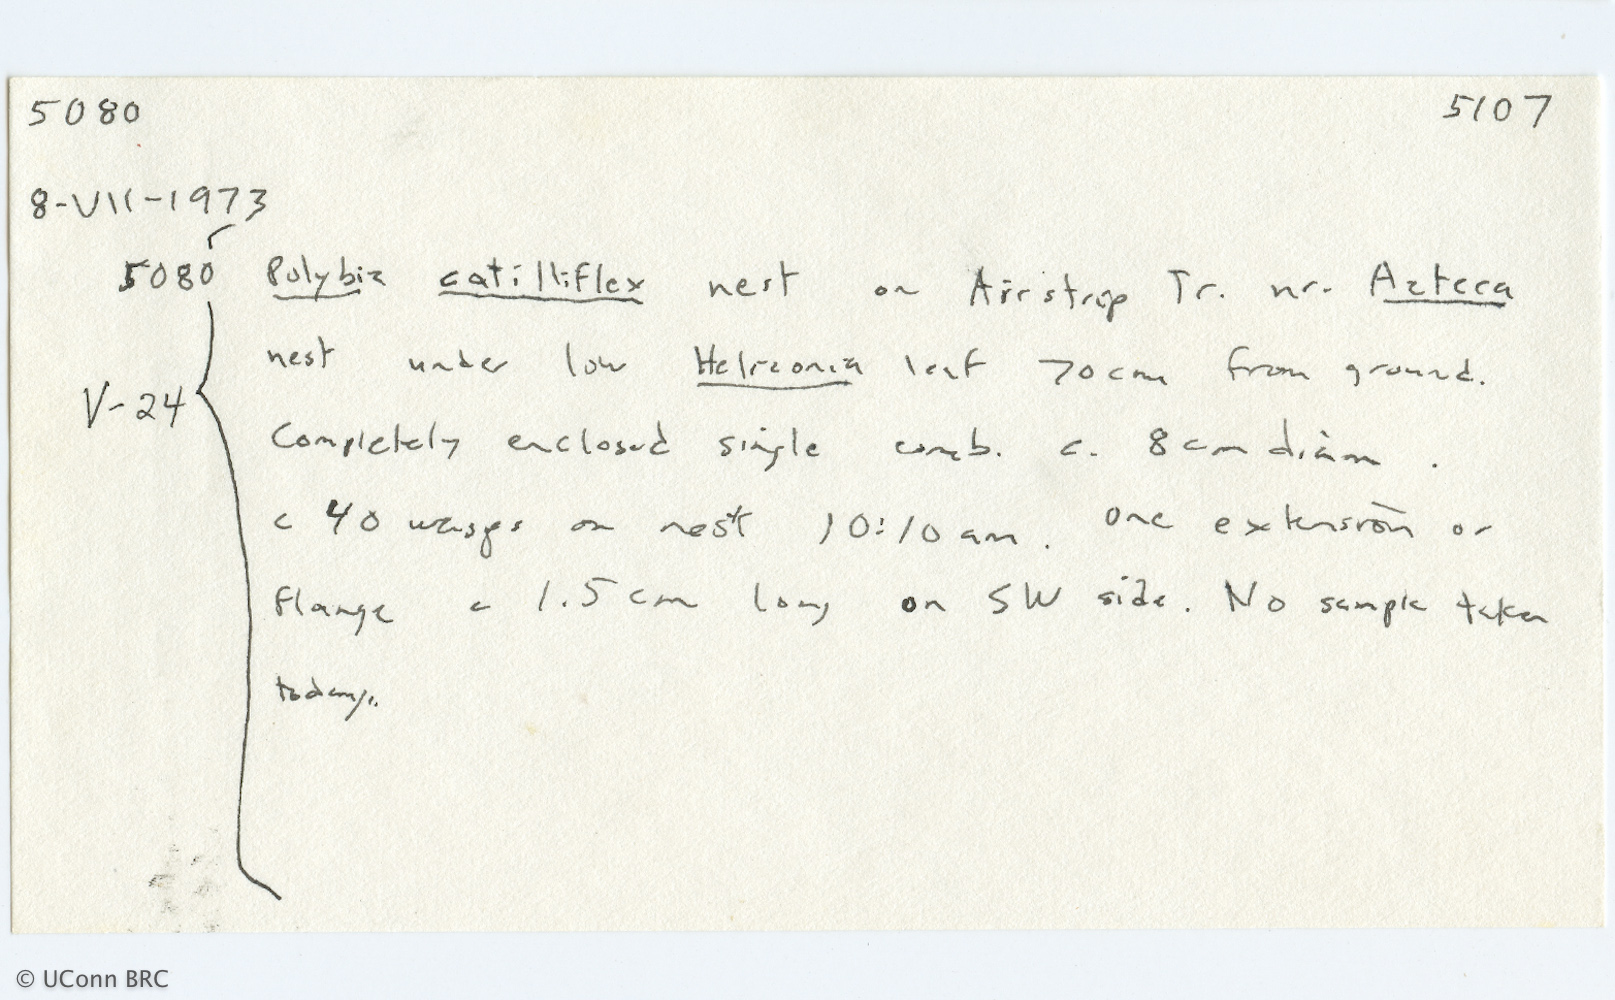 5080 5107
8-VII-1973
5080 Polybia catilliflex nest on Airstrip Tr. nr. Azteca
nest under low Heliconia leaf 70cm from ground.
V-24
Completely enclosed single comb. c. 8cm diam.
c 40 wasps on nest 10:10 am. One extension or
flange c 1.5cm long on SW side. No sample taken
today.
© UConn BRC